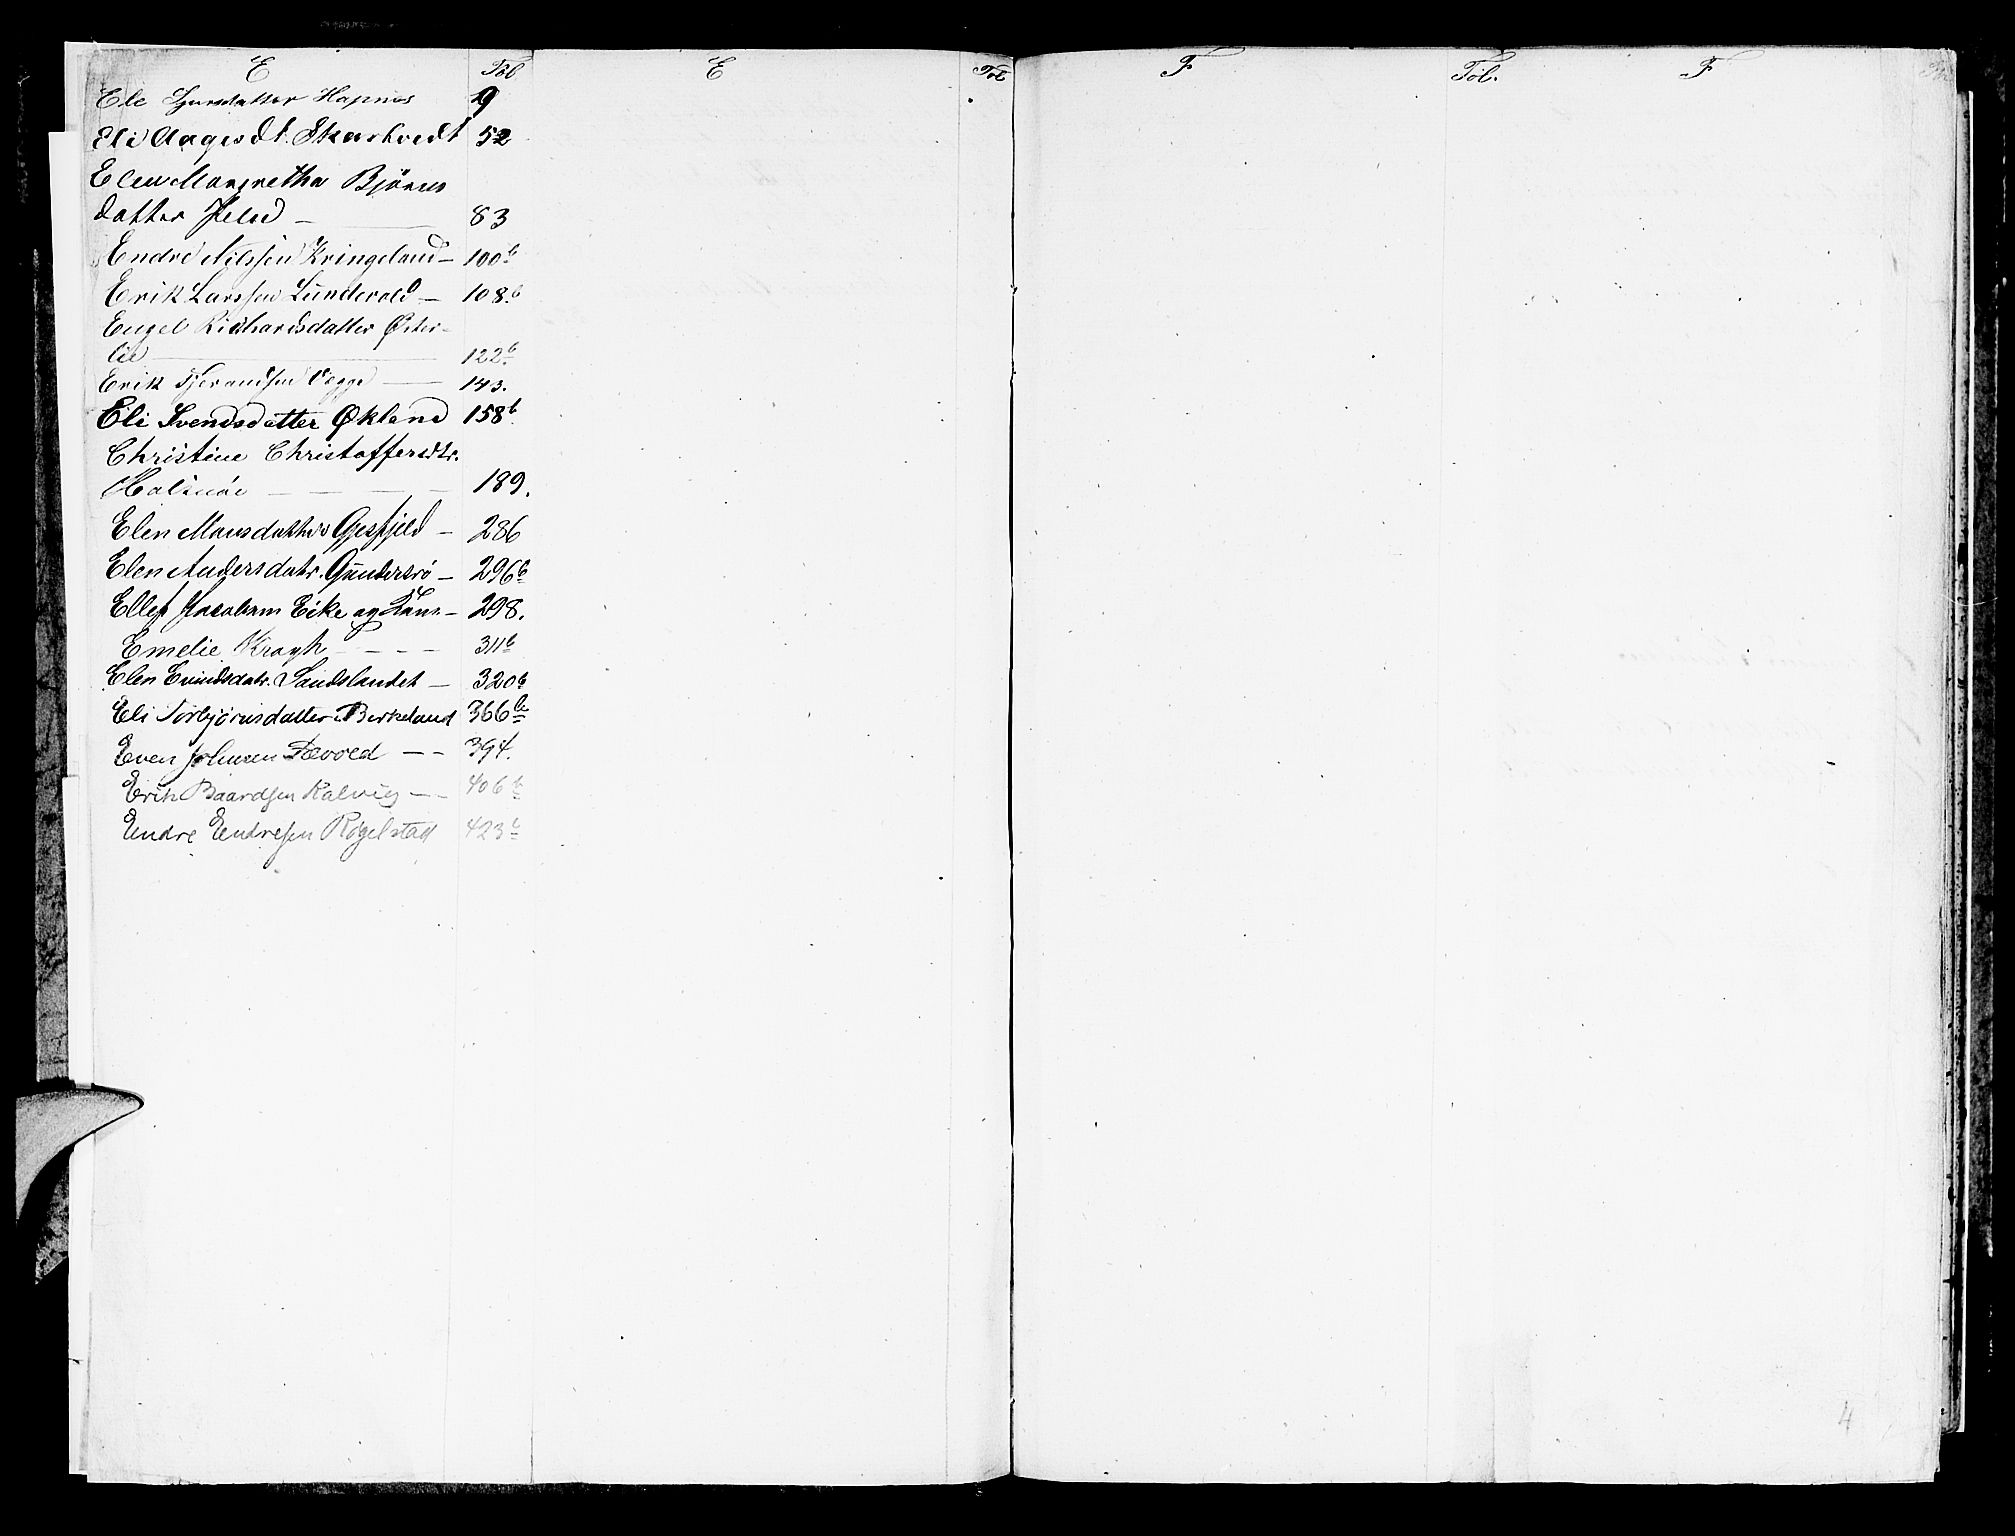 E Fol E Fol
Eli Sjursdatter Hapnes 9
Eli Aagesdt. Skarhvedt 52
Elen Margretha Bjørns
datter Jelse — 83
Endre Nilssen Kringeland — 100b
Erik Larssen Lundevold — 108.b
Engel Richardsdatter Øster-
lie 122b
Erik Tjerandsen Vegge — 143.
Eli Svendsdatter Økland 158b.
Christine Christoffersdtr.
Halsnøe — — — — 189.
Elen Monsdatter Gjesfjeld — 286
Elen Andersdatr. Gundersrø — 296b
Ellef Jacobsen Eike og Kone — 298.
Emelie Kragh — — — 311b
Elen Eivindsdatr. Sandslandet — 320b
Eli Torbjørnsdatter Birkeland 366b
Even Johnsen Tævold — — 394.
Erik Baardsen Kalvig — — 406b
Endre Endresen Røgelstad 423b
F Fol. F
4